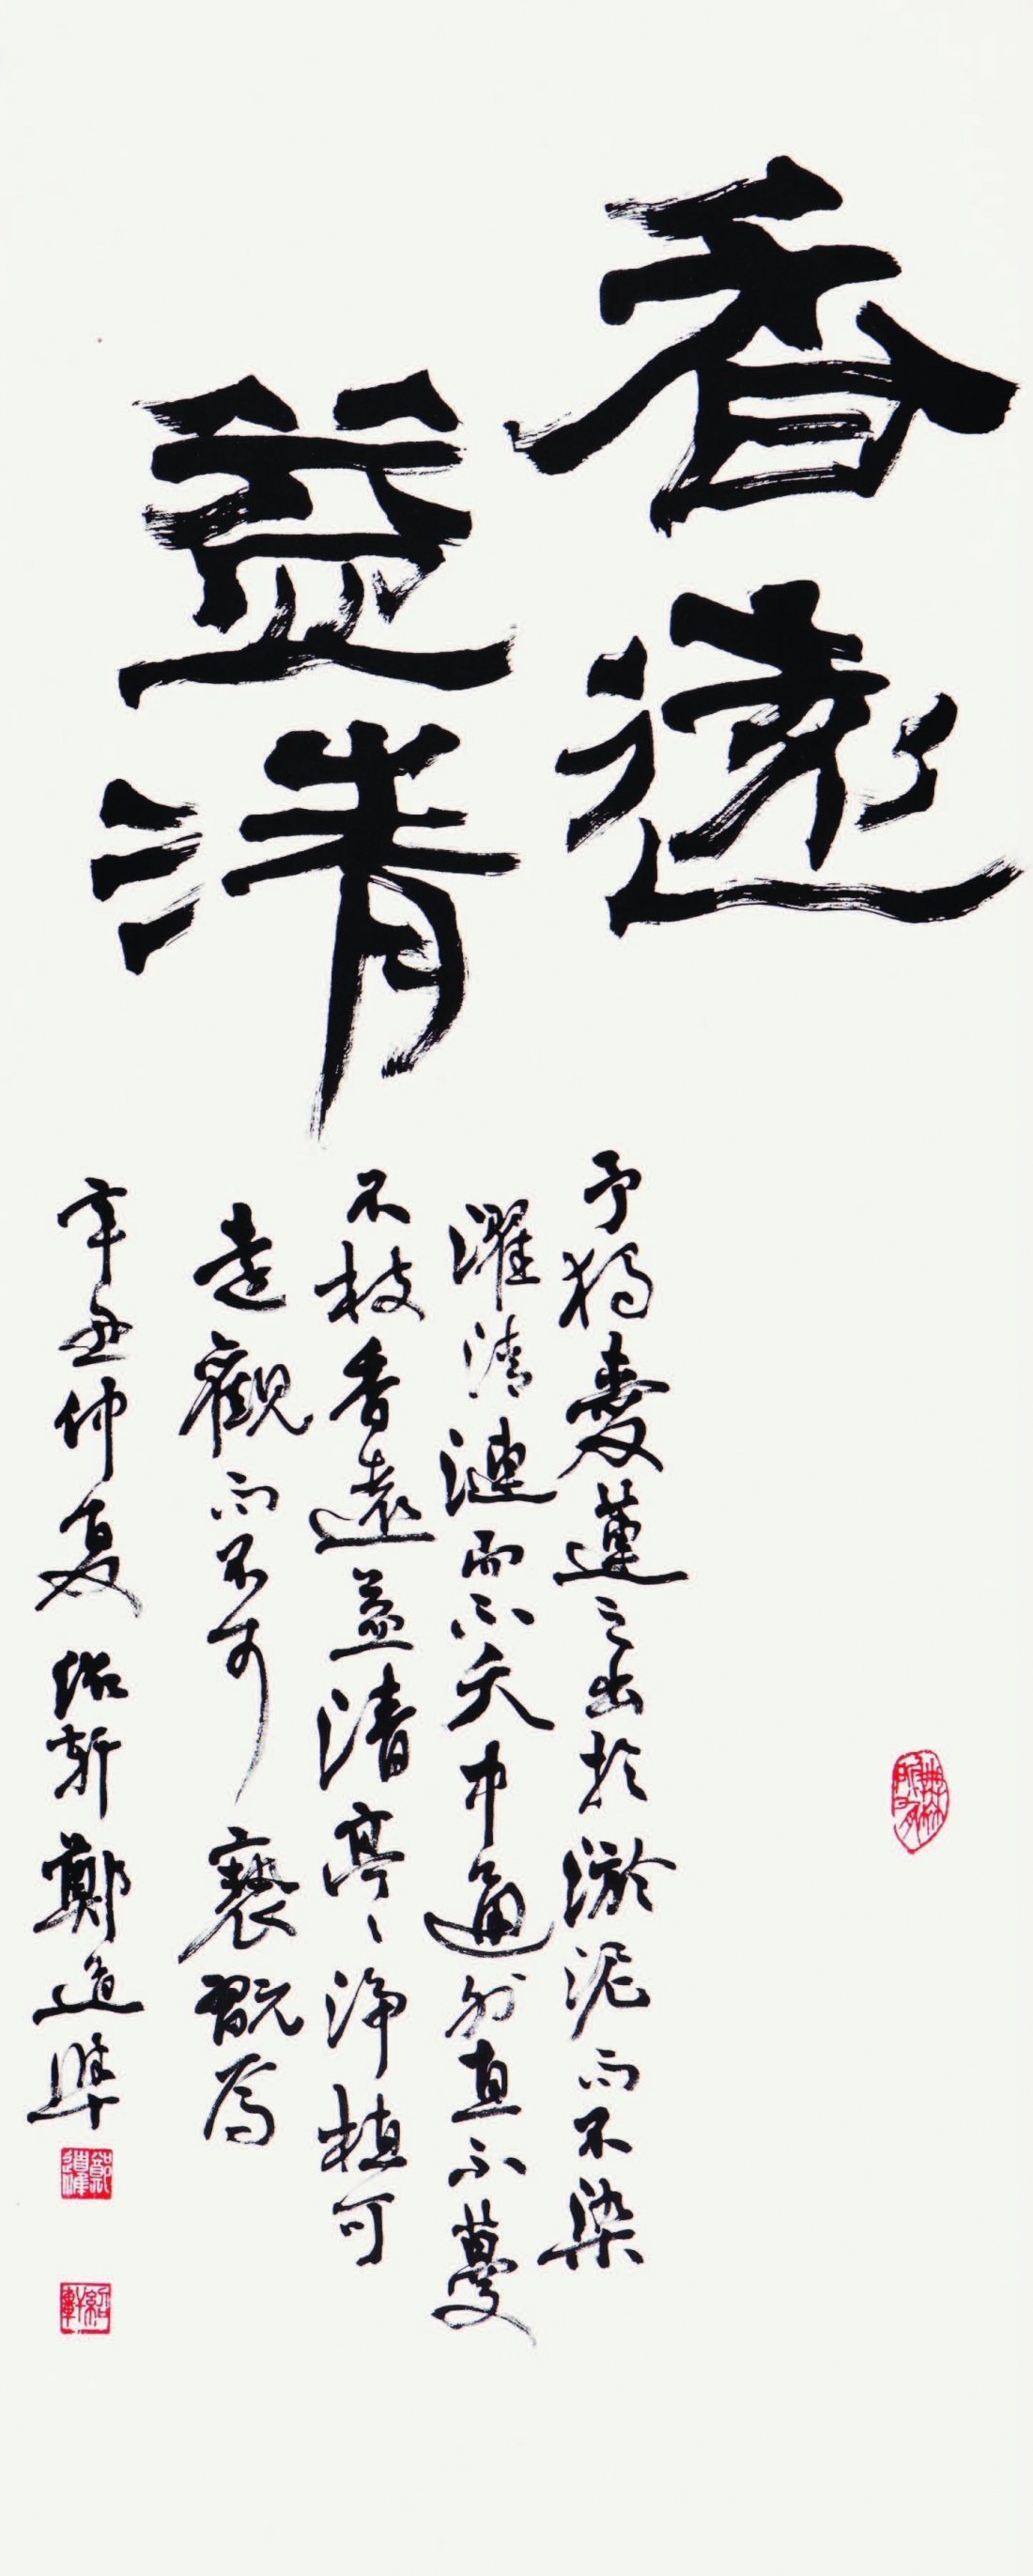 香遠
益清
予獨愛蓮之出於淤泥而不染
濯清漣而不夭中通外直不蔓
不枝香遠益清亭〻淨植可
遠觀而不可褻翫焉
辛丑仲夏 紹軒 鄭道暉
紹軒